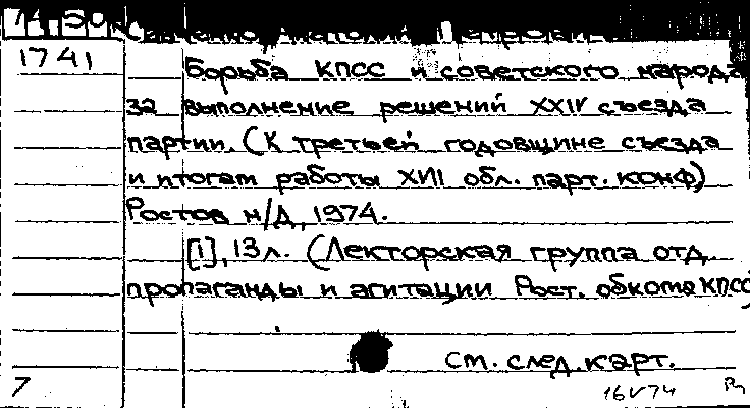 74-50
Савченко, Анатолий Петрович
1741
Борьба КПСС и советского народа
за выполнение решений XXIV съезда
партии. (К третьей годовщине съезда
и итогам работы XVII обл. парт. конф)
Ростов н/Д, 1974.
[1], 13 л. (Лекторская группа отд.
пропаганды и агитации Рост. обкома КПСС)
См. след. карт.
7
16V74